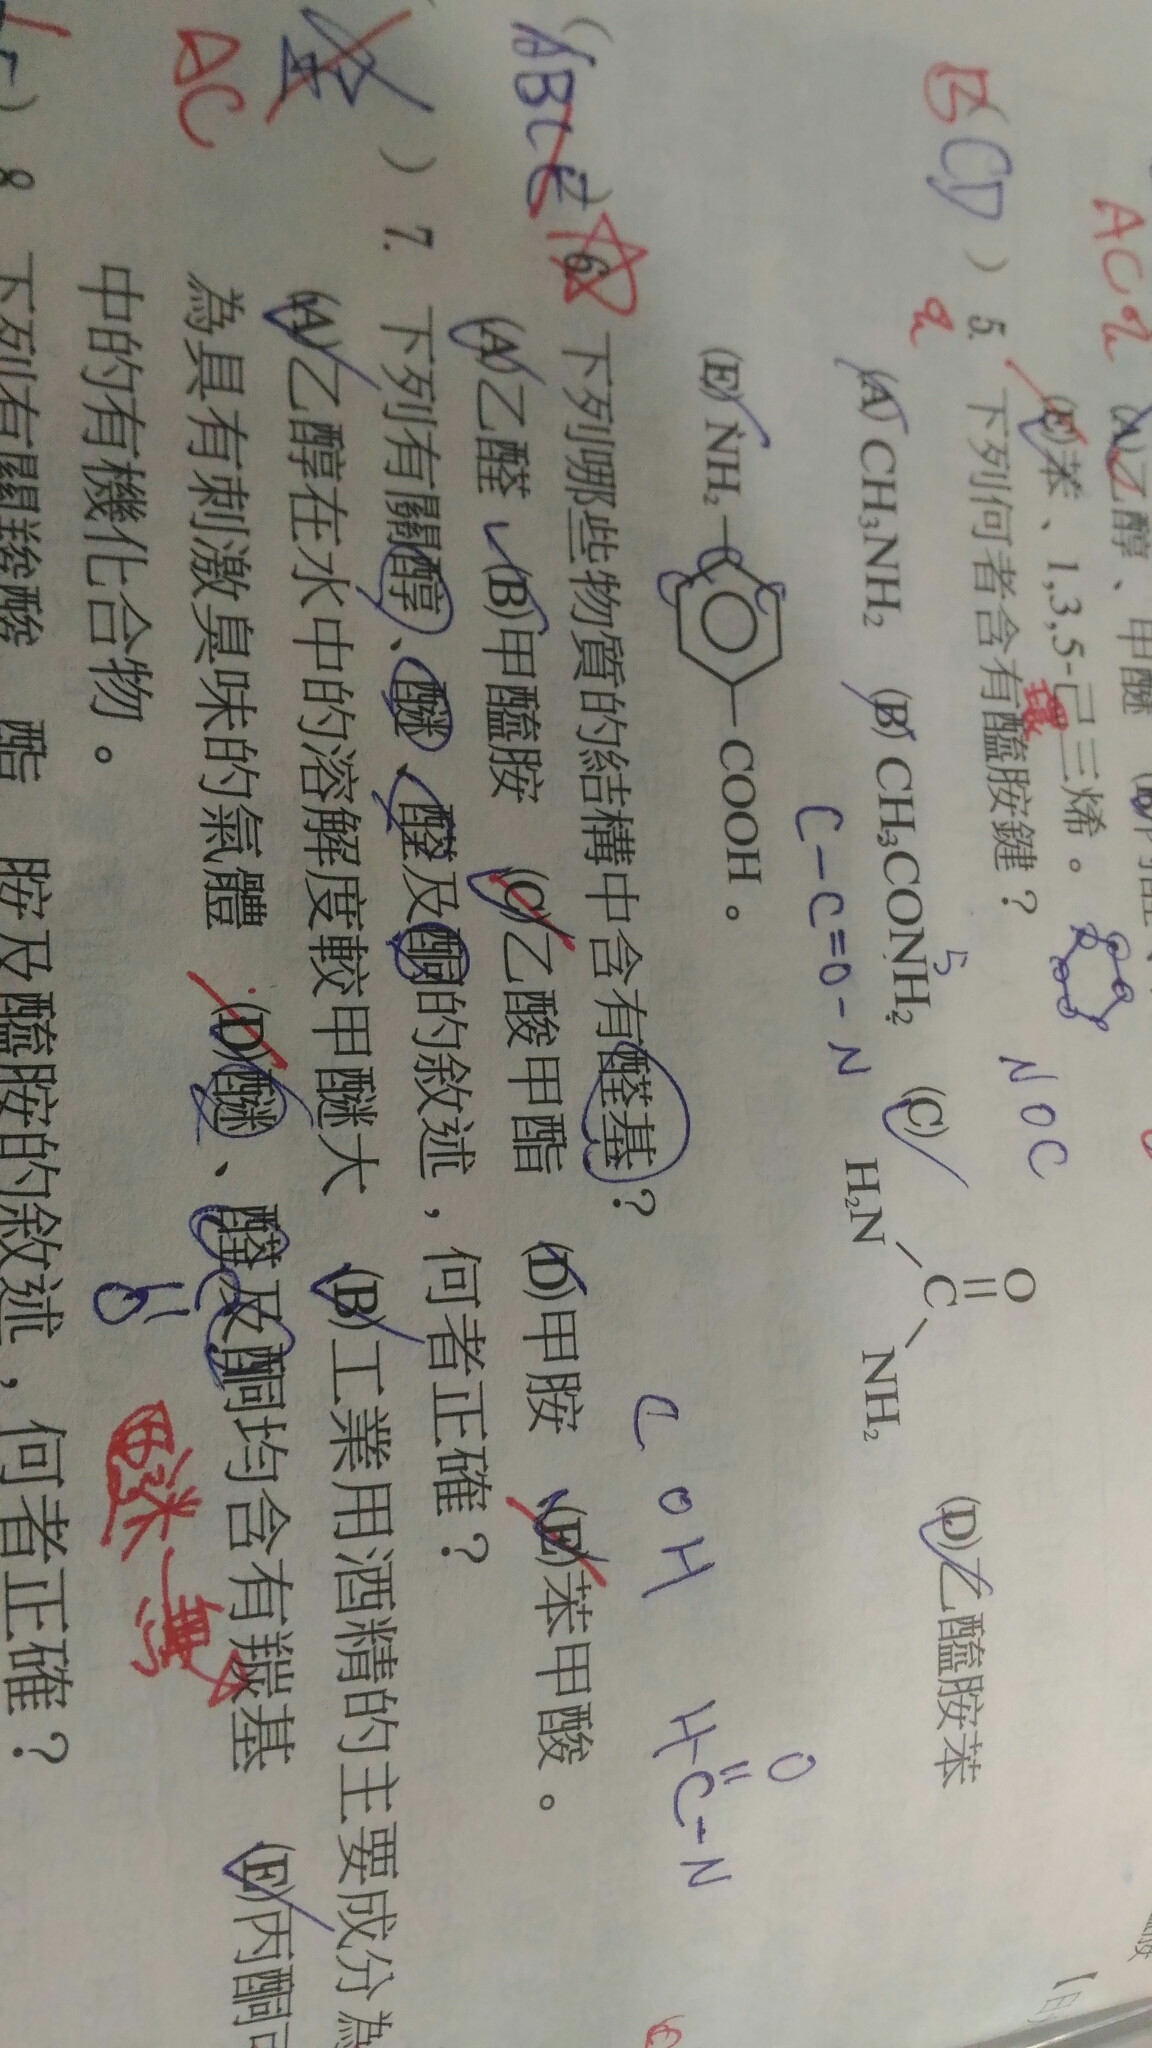 ACE
(A)乙醇、甲醚
(E)苯、1,3,5-己三烯。
BCD ) 5. 下列何者含有醯胺鍵?
NOC
(A) CH₃NH₂ (B) CH₃CONH₂ (C) H₂N C O NH₂ (D)乙醯胺苯
C-C=O-N
(E) NH₂ COOH。
ABCE ) 6. 下列哪些物質的結構中含有醛基?
C OH
H-C-N
O
(A)乙醛 (B)甲醯胺 (C)乙酸甲酯 (D)甲胺 (E)苯甲酸。
) 7. 下列有關醇、醚、醛及酮的敘述,何者正確?
AC
(A)乙醇在水中的溶解度較甲醚大 (B)工業用酒精的主要成分為
為具有刺激臭味的氣體 (D)醚、醛及酮均含有羰基 (E)丙酮可
中的有機化合物。
醚無
) 8. 下列有關羧酸、酯、胺及醯胺的敘述,何者正確?